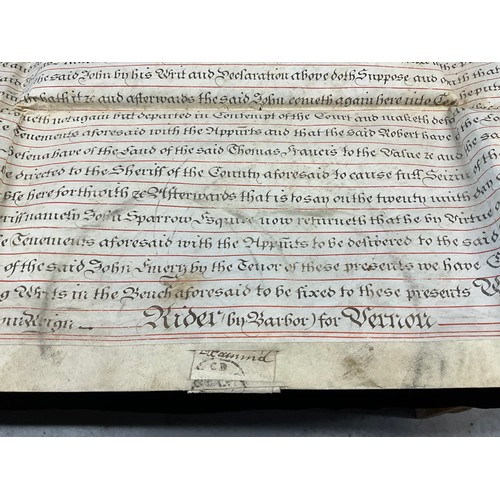 the said John by his Writ and Declaration above doth Suppose and
hath &c and afterwards the said John cometh again here into
again but departed in Contempt of the Court and maketh
Tenements aforesaid with the Appurts and that the said Robert have
have of the Land of the said Thomas Francis to the Value &c and the
directed to the Sheriff of the County aforesaid to cause full Seizin of
here forthwith &c Afterwards that is to say on the twenty ninth day
namely John Sparrow Esquire now returneth that he by Virtue of
Tenements aforesaid with the Appurts to be delivered to the said
of the said John Emery by the Tenor of these presents we have
Writs in the Bench aforesaid to be fixed to these presents
Reign Rider (by Barbor) for Vernon